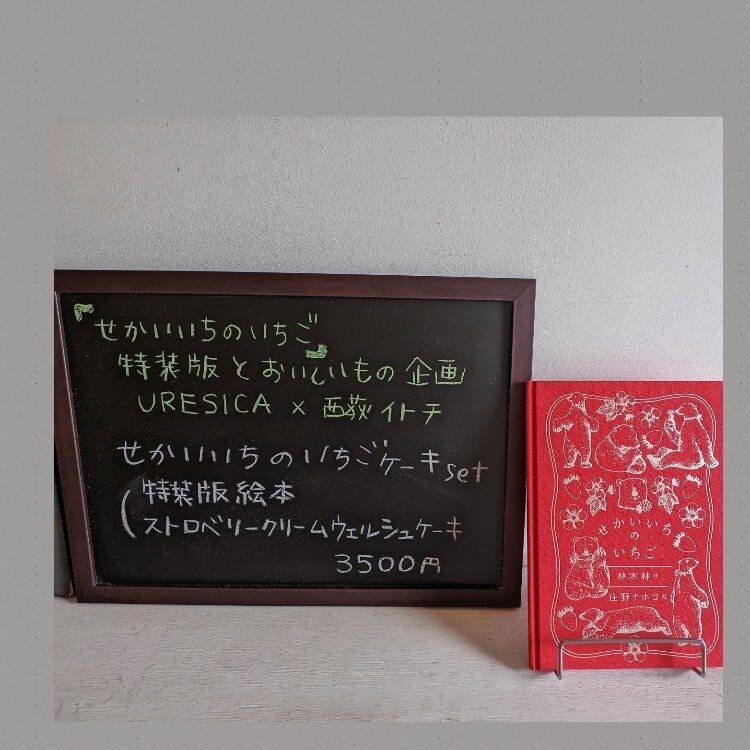 『せかいいちのいちご』
特装版とおいしいもの企画
URESICA × 西荻イトチ
せかいいちのいちごケーキset
(特装版絵本
ストロベリークリームウェルシュケーキ
3500円
せかいいち
の
いちご
林木林 作
庄野ナホコ 絵